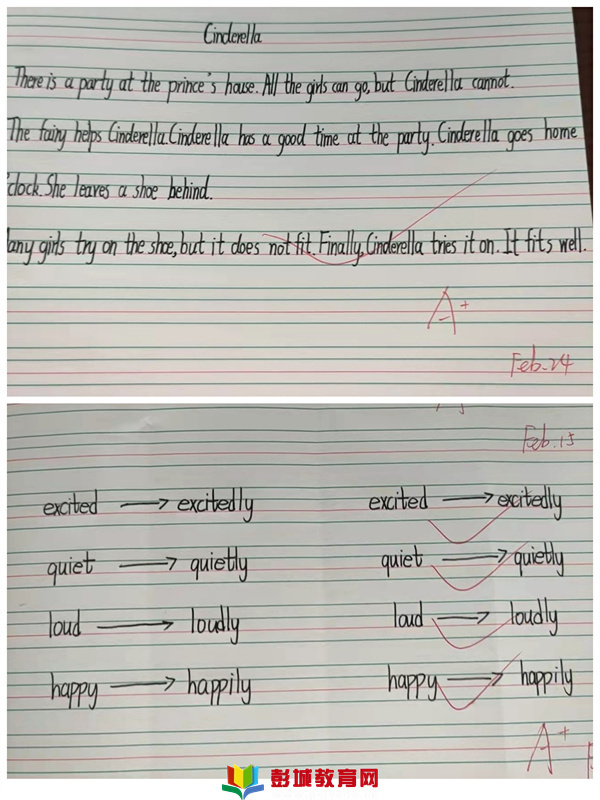 Cinderella
There is a party at the prince's house. All the girls can go, but Cinderella cannot.
The fairy helps Cinderella. Cinderella has a good time at the party. Cinderella goes home
'clock. She leaves a shoe behind.
any girls try on the shoe, but it does not fit. Finally, Cinderella tries it on. It fits well.
A+
Feb. 24
Feb. 15
excited → excitedly excited → excitedly
quiet → quietly quiet → quietly
loud → loudly loud → loudly
happy → happily happy → happily
A+
彭城教育网